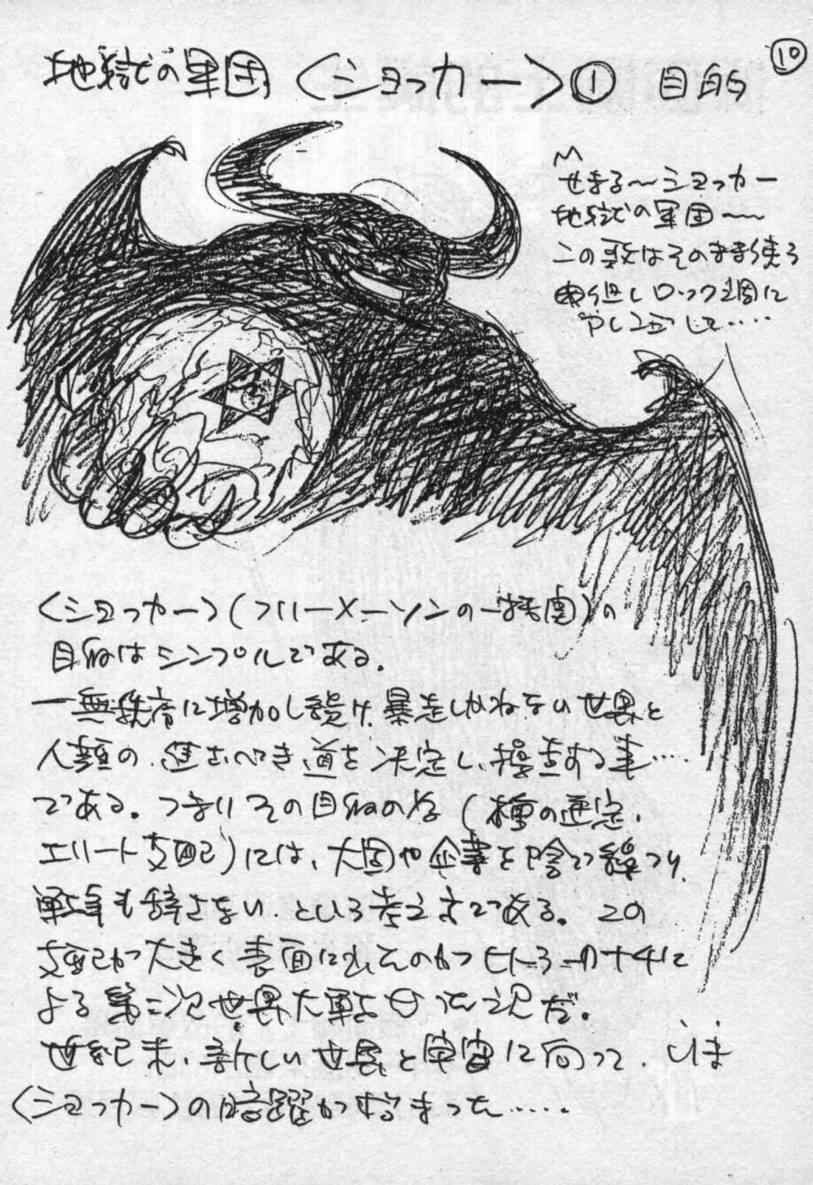 ⑩
地獄の軍団〈ショッカー〉① 目的
〽
せまる〜ショッカー
地獄の軍団〜
この歌はそのまま使う
繰返しロック調に
して‥‥
〈ショッカー〉(フリーメーソンの一機関)の
目的はシンプルである。
一無秩序に増加し続け、暴走しかねない世界と
人類の、進むべき道を決定し、操查する事‥‥
である。つまりその目的の為(種の選定、
エリート支配)には、大国や企業を陰で操つり、
戦争も辞さない、という考え方である。この
支配が大きく表面に出たのがヒトラーのナチに
よる第二次世界大戦だ。
世紀末、新しい世界と宇宙に向って、いま
〈ショッカー〉の暗躍が始まった‥‥‥